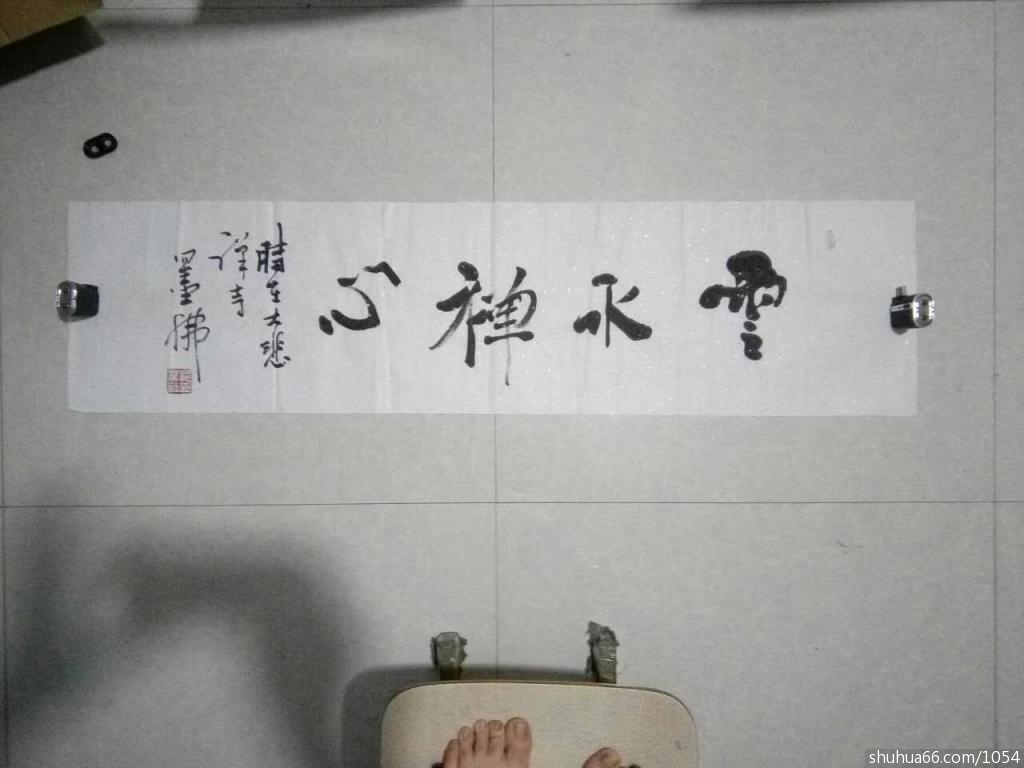 雲水禅心
時在大悲
禅寺
墨拂
shuhua66.com/1054